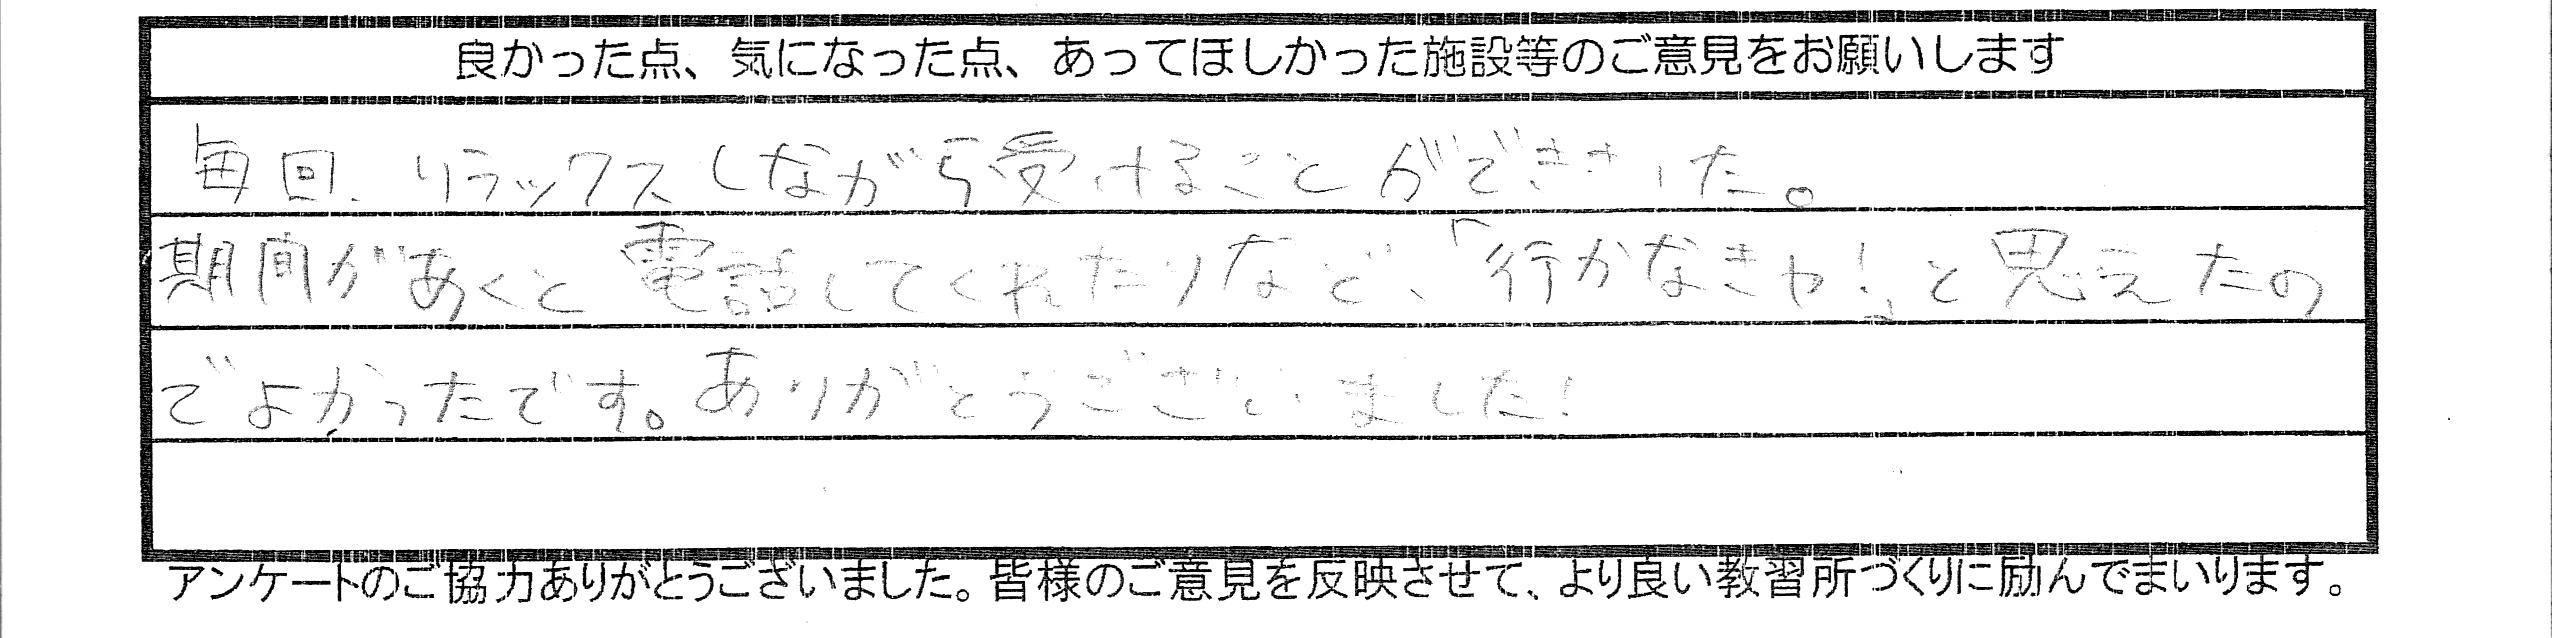 良かった点、気になった点、あってほしかった施設等のご意見をお願いします
毎回、リラックスしながら受けることができました。
期間があくと電話してくれたりなど、「行かなきゃ!」と思えたの
でよかったです。ありがとうございました!
アンケートのご協力ありがとうございました。皆様のご意見を反映させて、より良い教習所づくりに励んでまいります。